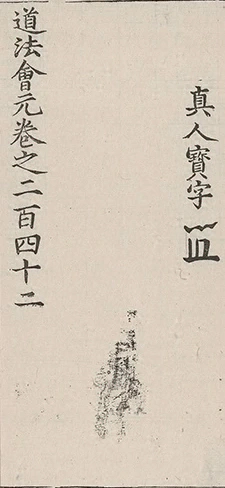 真人寶字
道法會元卷之二百四十二